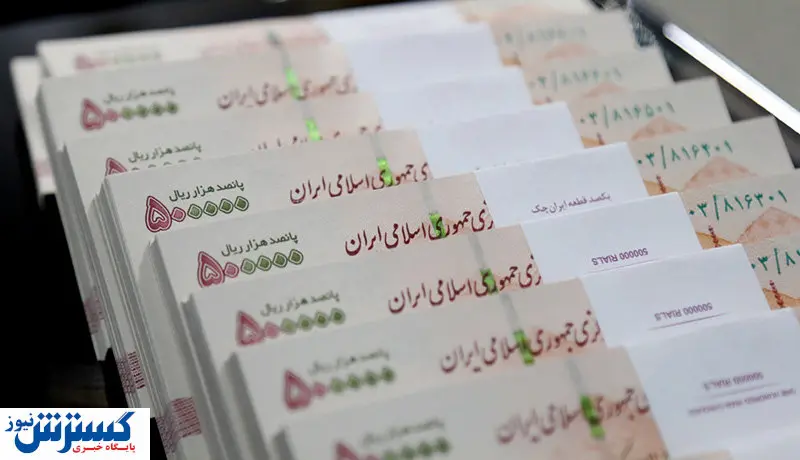 پانصد هزار ریال
۵۰۰۰۰۰
جمهوری اسلامی ایران
۸۱۶۵۰۱
پانصد هزار ریال
۰۳/۸۱۶۴۰۱
پانصد هزار ریال
۵۰۰۰۰۰
جمهوری اسلامی ایران
یکصد قطعه ایران چک
۰۳/۸۱۶۳۰۱
پانصد هزار ریال
۵۰۰۰۰۰
زی جمهوری اسلامی ایران
500000 RIALS
۰۳/۸۱۶۲۰۱
پانصد هزار ریال
۵۰۰۰۰۰
زی جمهوری اسلامی ایران
500000 RIALS
پانصد هزار ریال
۵۰۰۰۰۰
زی جمهوری اسلامی ایران
500000 RIALS
جمهوری اسلامی ایران
گسترش نیوز
پایگاه خبری